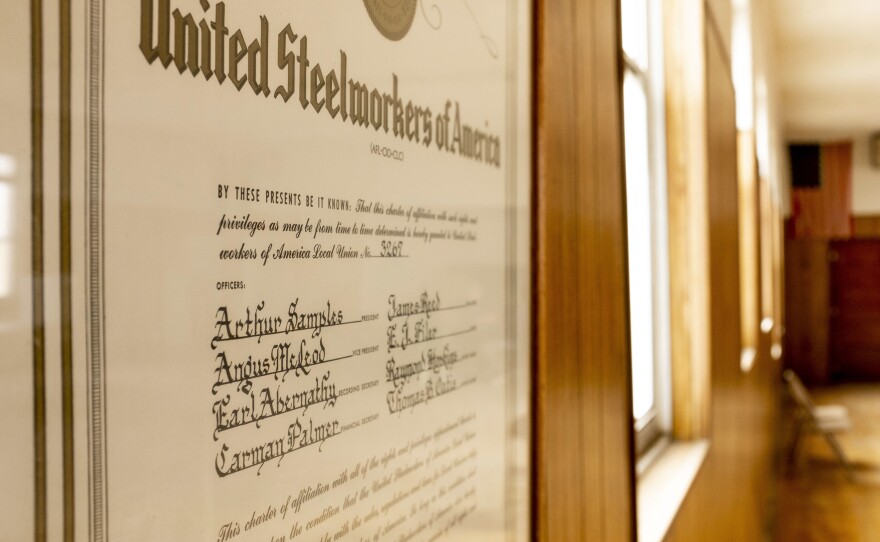 United Steelworkers of America
(AFL-CIO-CLC)
BY THESE PRESENTS BE IT KNOWN: That this charter of affiliation with such rights and
privileges as may be from time to time determined is hereby granted to United Steel
workers of America Local Union No. 3267
OFFICERS:
Arthur Samples PRESIDENT James Reed
Angus McLeod VICE PRESIDENT E. J. Filer
Earl Abernathy RECORDING SECRETARY Raymond
Carman Palmer FINANCIAL SECRETARY Thomas B.
This charter of affiliation with all of the rights and privileges appertaining thereto is
upon the condition that the United Steelworkers of America Local Union
with the rules, regulations and
of America. So long as this condition